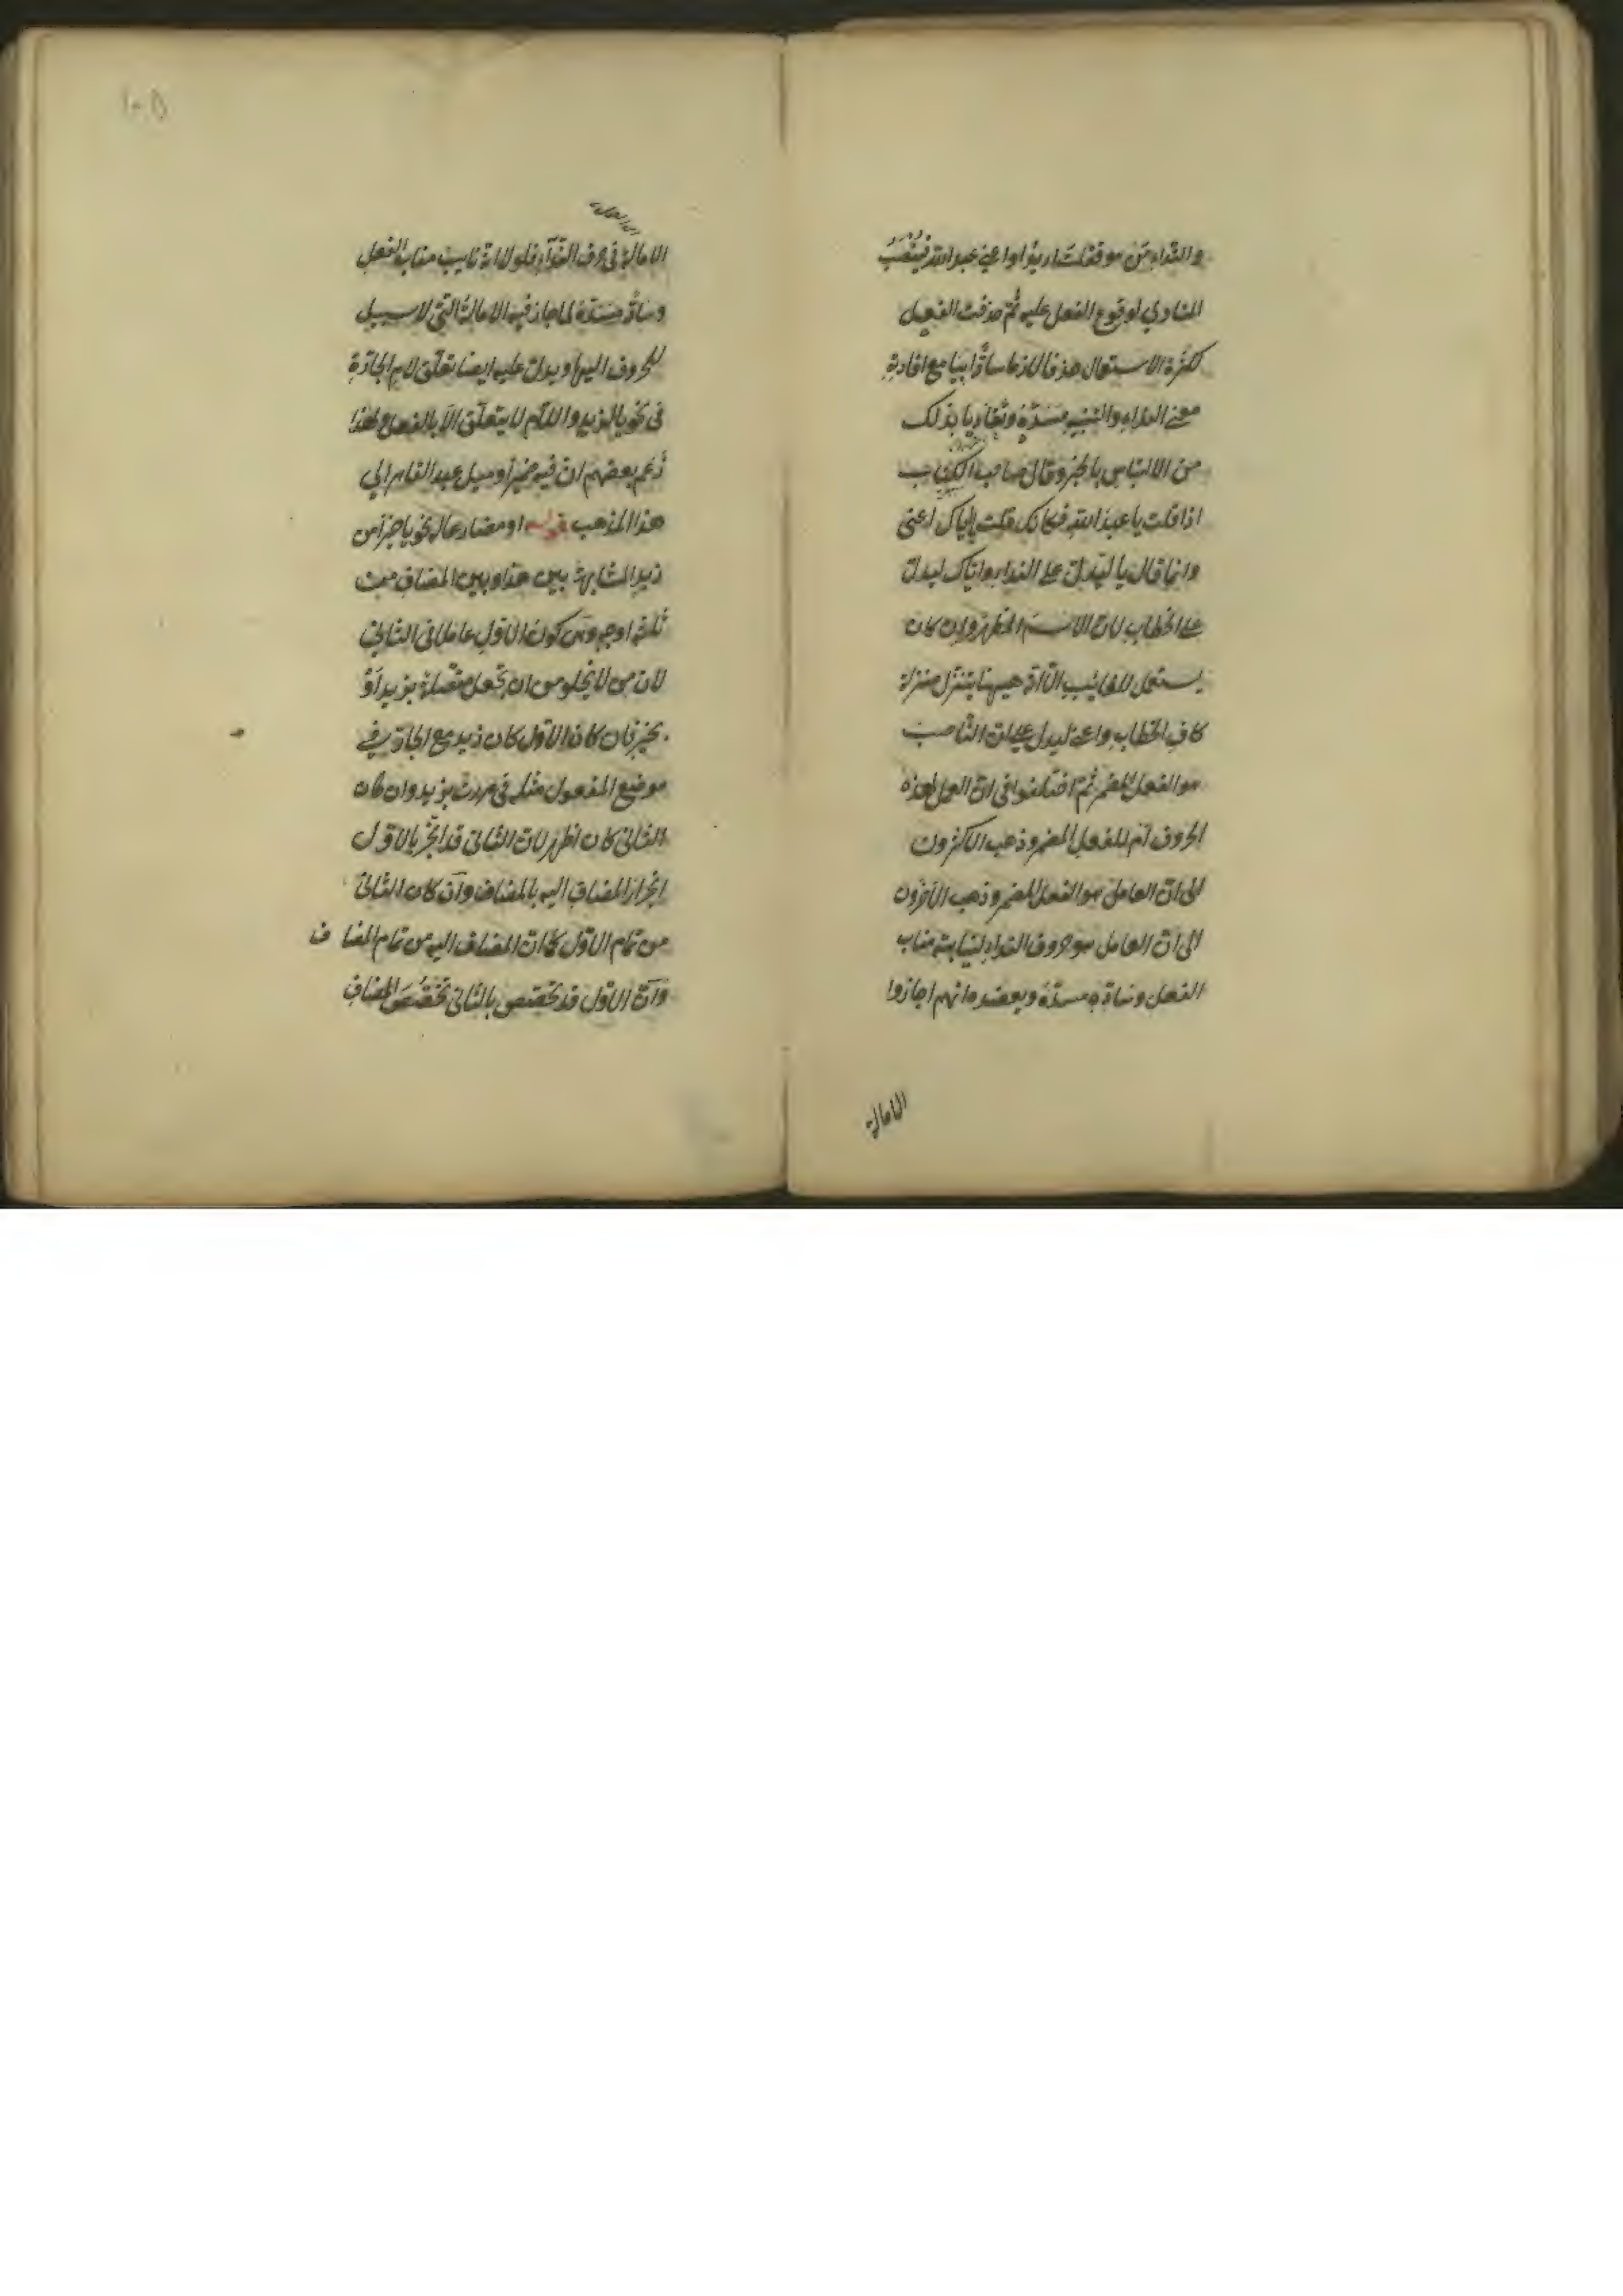 والنداء من هو فقلت اريد او اعني عبد الله فينتصب
المنادي لوقوع الفعل عليه ثم حذفت الفعل
لكثرة الاستعمال حذفا لازما سادًّا يا مع افادته
معنى النداء والتنبيه مسدّه وتفاديا بذلك
من الالتباس بالخبر وقال صاحب الكتاب
اذا قلت يا عبد الله فكانك قلت يا اياك اعني
وانما قال يا ليدل على النداء واياك ليدل
على الخطاب لان الاسم المظهر وان كان
يستعمل للغائب الا انه هيهنا يتنزل منزلة
كاف الخطاب واعني ليدل على ان الناصب
هو الفعل المضمر ثم اختلفوا في ان العمل لهذه
الحروف ام للفعل المضمر وذهب الاكثرون
الى ان العامل هو الفعل المضمر وذهب الآخرون
الى ان العامل هو حروف النداء لنيابته مناب
الفعل وسادّه مسدّه ويعضده انهم اجازوا
الامالة
الامالة في حرف النداء فلولا انه نايب مناب الفعل
وسادّ مسدّه لما جاز فيه الامالة التي لا سبيل
للحروف اليها ويدل عليه ايضا تعلّق لام الجارّة
في نحو يا لزيد واللام لا يتعلّق الا بالفعل ولهذا
زعم بعضهم ان فيه ضميرا وميل عبد القاهر الي
هذا المذهب قوله او مضارعا له نحو يا خيرا من
زيد المشابهة بين هذا وبين المضاف من
ثلثة اوجه وهي كون الاول عاملا في الثاني
لان من لا يخلو من ان تجعل متصلة بزيد او
بخير فان كان الاول كان زيد مع الجارّ في
موضع المفعول مثله في مررت بزيد وان كان
الثاني كان اظهر لان الثاني قد انجرّ بالاول
انجرار المضاف اليه بالمضاف وان كان الثاني
من تمام الاول كما ان المضاف اليه من تمام المضاف
وان الاول قد تخصّص بالثاني تخصّص المضاف